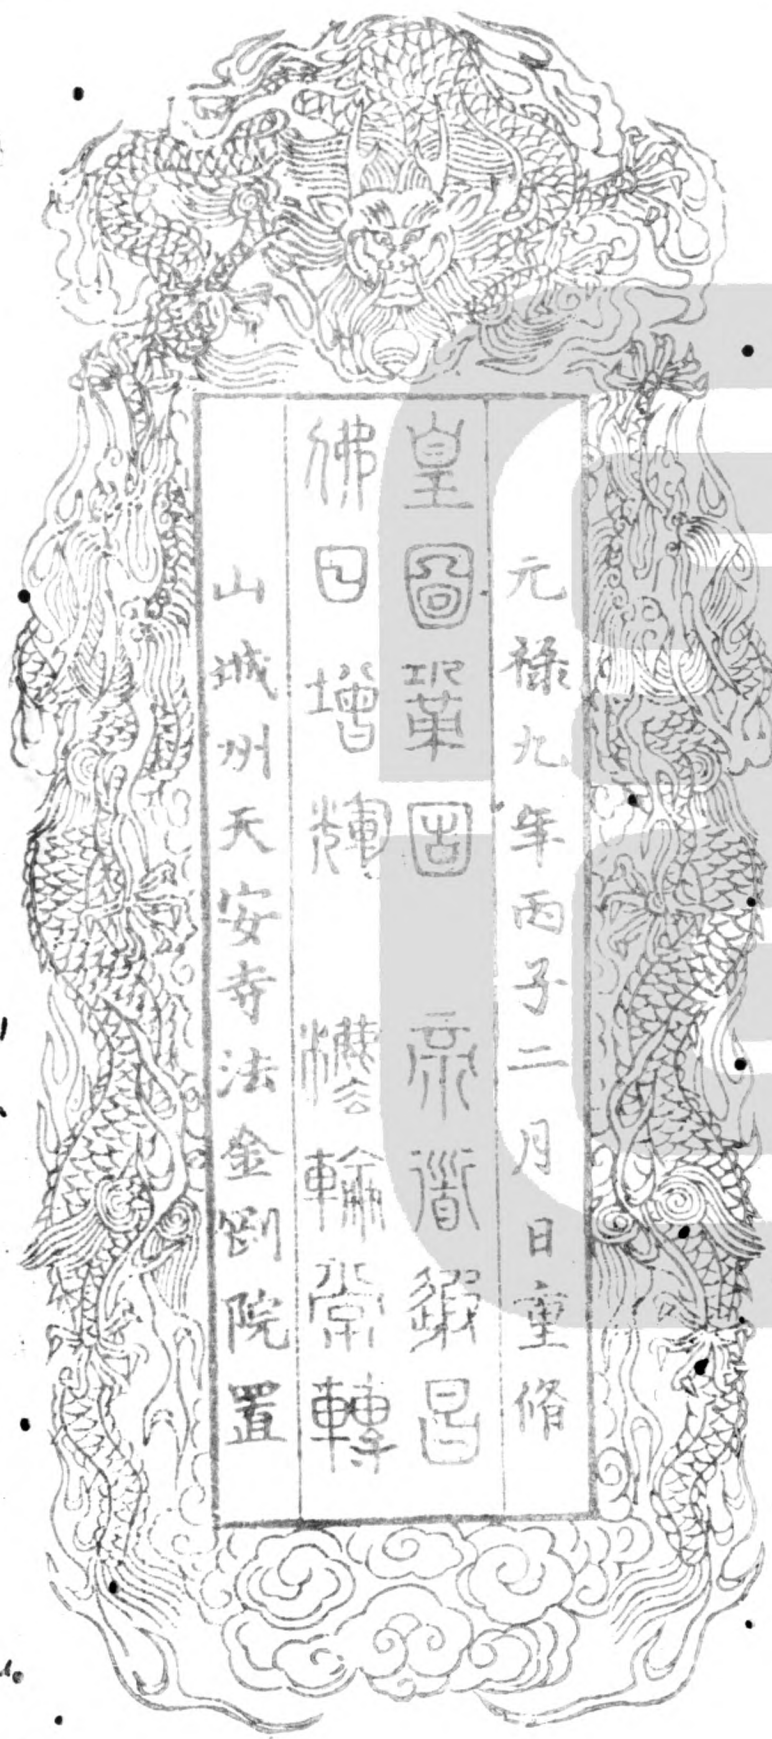 元禄九年丙子二月 日重脩
皇圖鞏固 帝道遐昌
佛日增輝 灋輪常轉
山城州天安寺法金剛院置